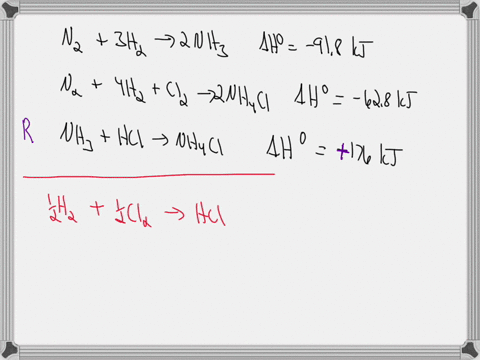 N₂ + 3H₂ → 2NH₃ ΔH⁰ = -91.8 kJ
N₂ + 4H₂ + Cl₂ → 2NH₄Cl ΔH⁰ = -62.8 kJ
R NH₃ + HCl → NH₄Cl ΔH⁰ = +176 kJ
½H₂ + ½Cl₂ → HCl